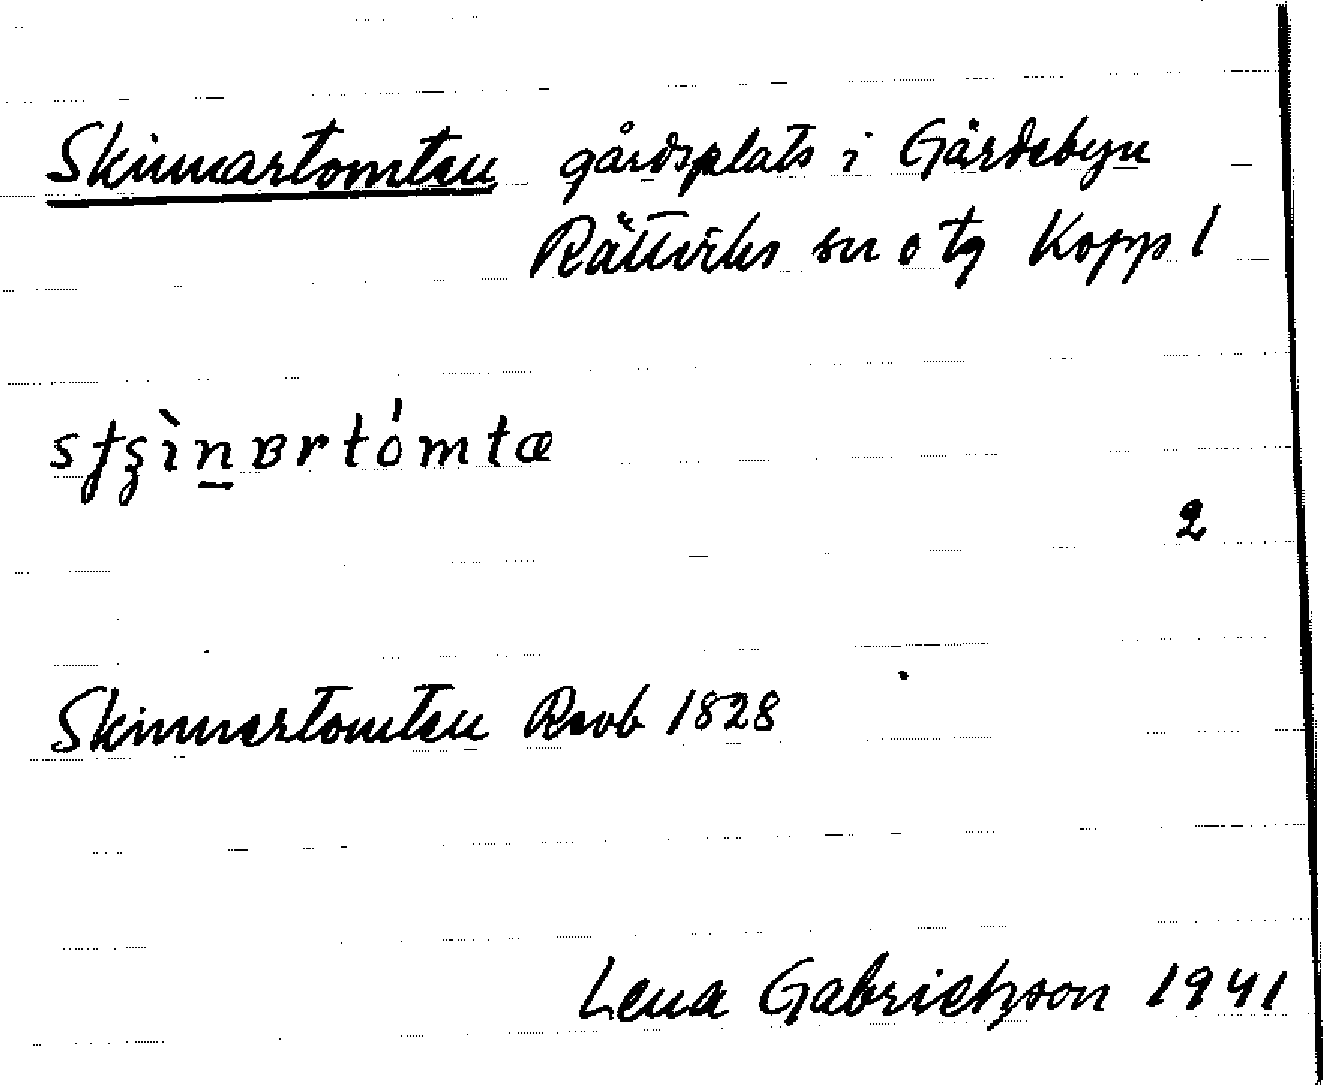 Skinnartomten gårdsplats i Gärdebyn
Rättviks sn o tg Kopp l
2
Skinnartomten Rsvb 1828
Lena Gabrielsson 1941